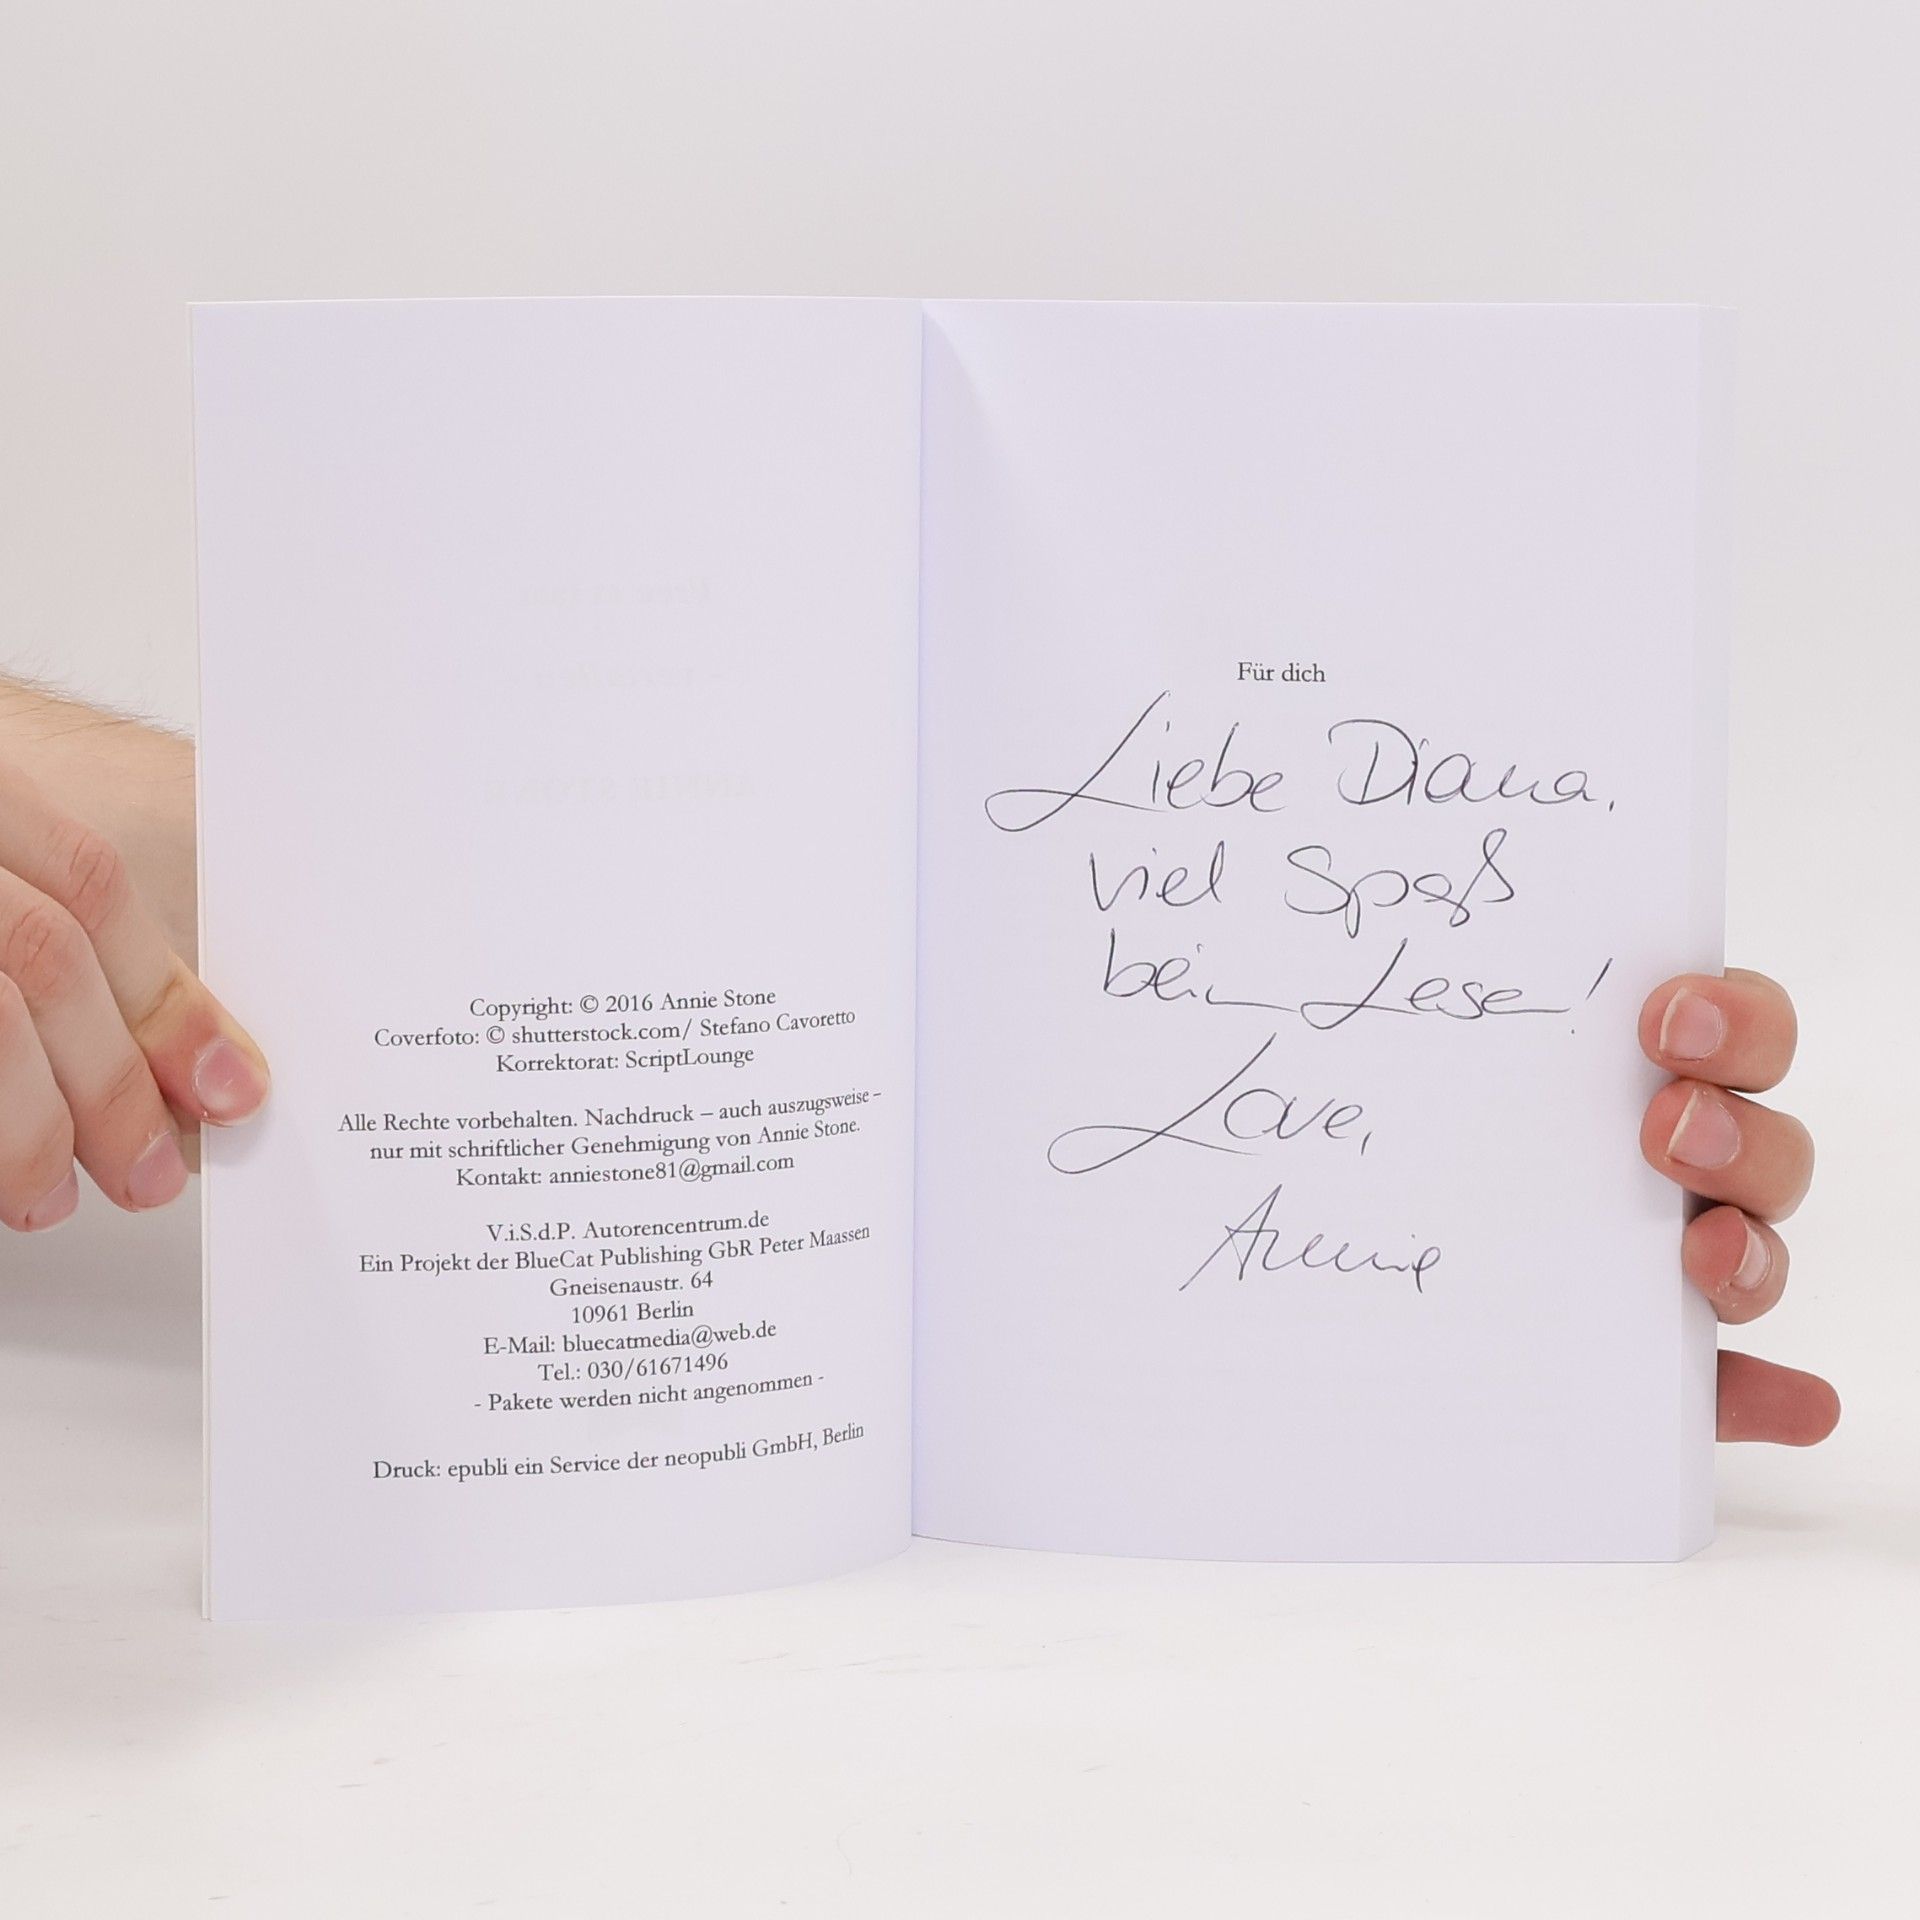 Copyright: © 2016 Annie Stone
Coverfoto: © shutterstock.com/ Stefano Cavoretto
Korrektorat: ScriptLounge
Alle Rechte vorbehalten. Nachdruck – auch auszugsweise –
nur mit schriftlicher Genehmigung von Annie Stone.
Kontakt: anniestone81@gmail.com
V.i.S.d.P. Autorencentrum.de
Ein Projekt der BlueCat Publishing GbR Peter Maassen
Gneisenaustr. 64
10961 Berlin
E-Mail: bluecatmedia@web.de
Tel.: 030/61671496
- Pakete werden nicht angenommen -
Druck: epubli ein Service der neopubli GmbH, Berlin
Für dich
Liebe Diana,
viel Spaß
beim Lesen!
Love,
Annie